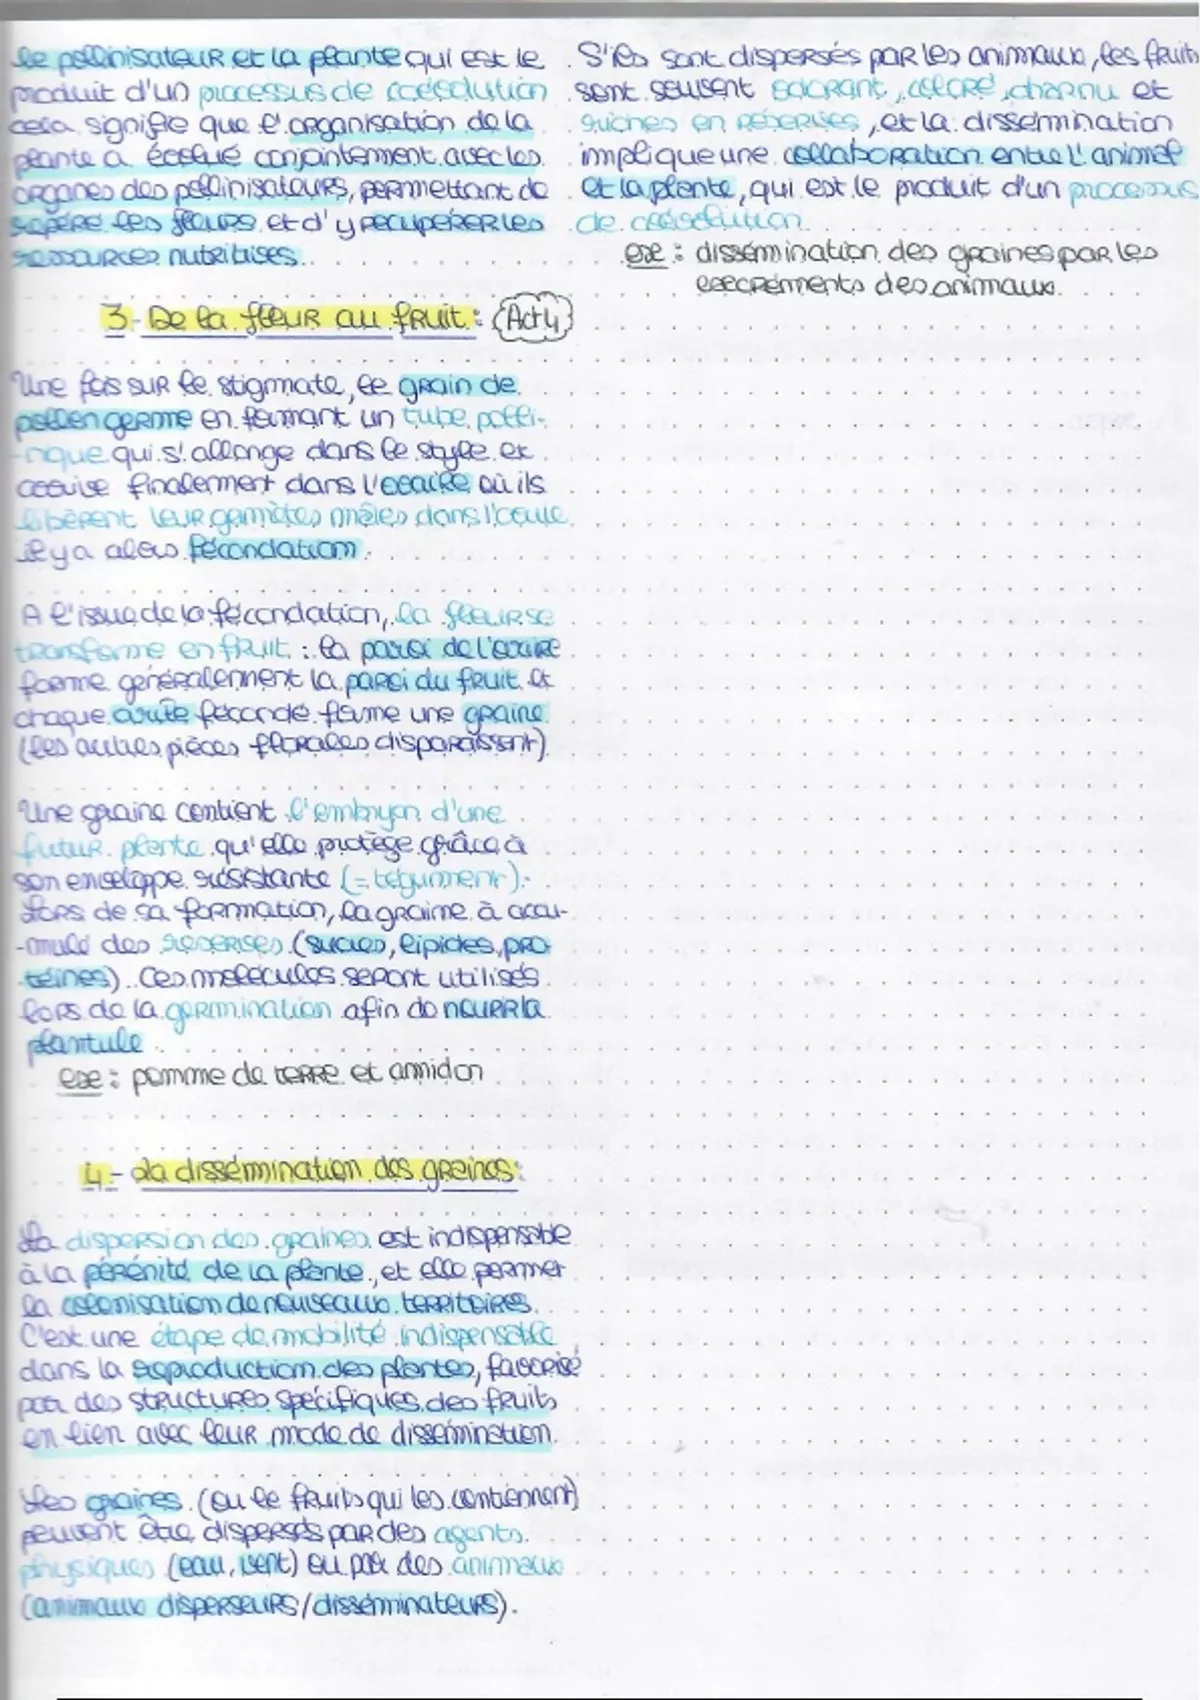 le pollinisateur et la plante qui est le
produit d'un processus de coévolution
cela signifie que l'organisation de la
plante a évolué conjointement avec les
organes des pollinisateurs, permettant de
repère les fleurs et d'y récupérer les
ressources nutritives.
3- De la fleur au fruit : (Act 4)
Une fois sur le stigmate, le grain de
pollen germe en formant un tube polli-
-nique qui s'allonge dans le style et
arrive finalement dans l'ovaire où ils
libèrent leur gamètes mâles dans l'ovule.
il y a alors fécondation.
A l'issue de la fécondation, la fleur se
transforme en fruit : la paroi de l'ovaire
forme généralement la paroi du fruit et
chaque ovule fécondé forme une graine
(les autres pièces florales disparaissent).
Une graine contient l'embryon d'une
futur plante qu'elle protège grâce à
son enveloppe résistante (= tégument).
Lors de sa formation, la graine à accu-
-mulé des réserves (sucres, lipides, pro
-téines). Ces molécules seront utilisés
lors de la germination afin de nourrir la
plantule.
ex : pomme de terre et amidon
4- La dissémination des graines :
La dispersion des graines est indispensable
à la pérénité de la plante, et elle permet
la colonisation de nouveaux territoires.
C'est une étape de mobilité indispensable
dans la reproduction des plantes, favorisé
par des structures spécifiques des fruits
en lien avec leur mode de dissémination.
Les graines (ou le fruits qui les contiennent)
peuvent être dispersés par des agents
physiques (eau, vent) ou par des animaux
(animaux disperseurs/disséminateurs).
S'ils sont dispersés par les animaux, les fruits
sont souvent odorant, coloré, charnu et
riches en réserves, et la dissémination
implique une collaboration entre l'animal
et la plante, qui est le produit d'un processus
de coévolution.
ex : dissémination des graines par les
excréments des animaux.